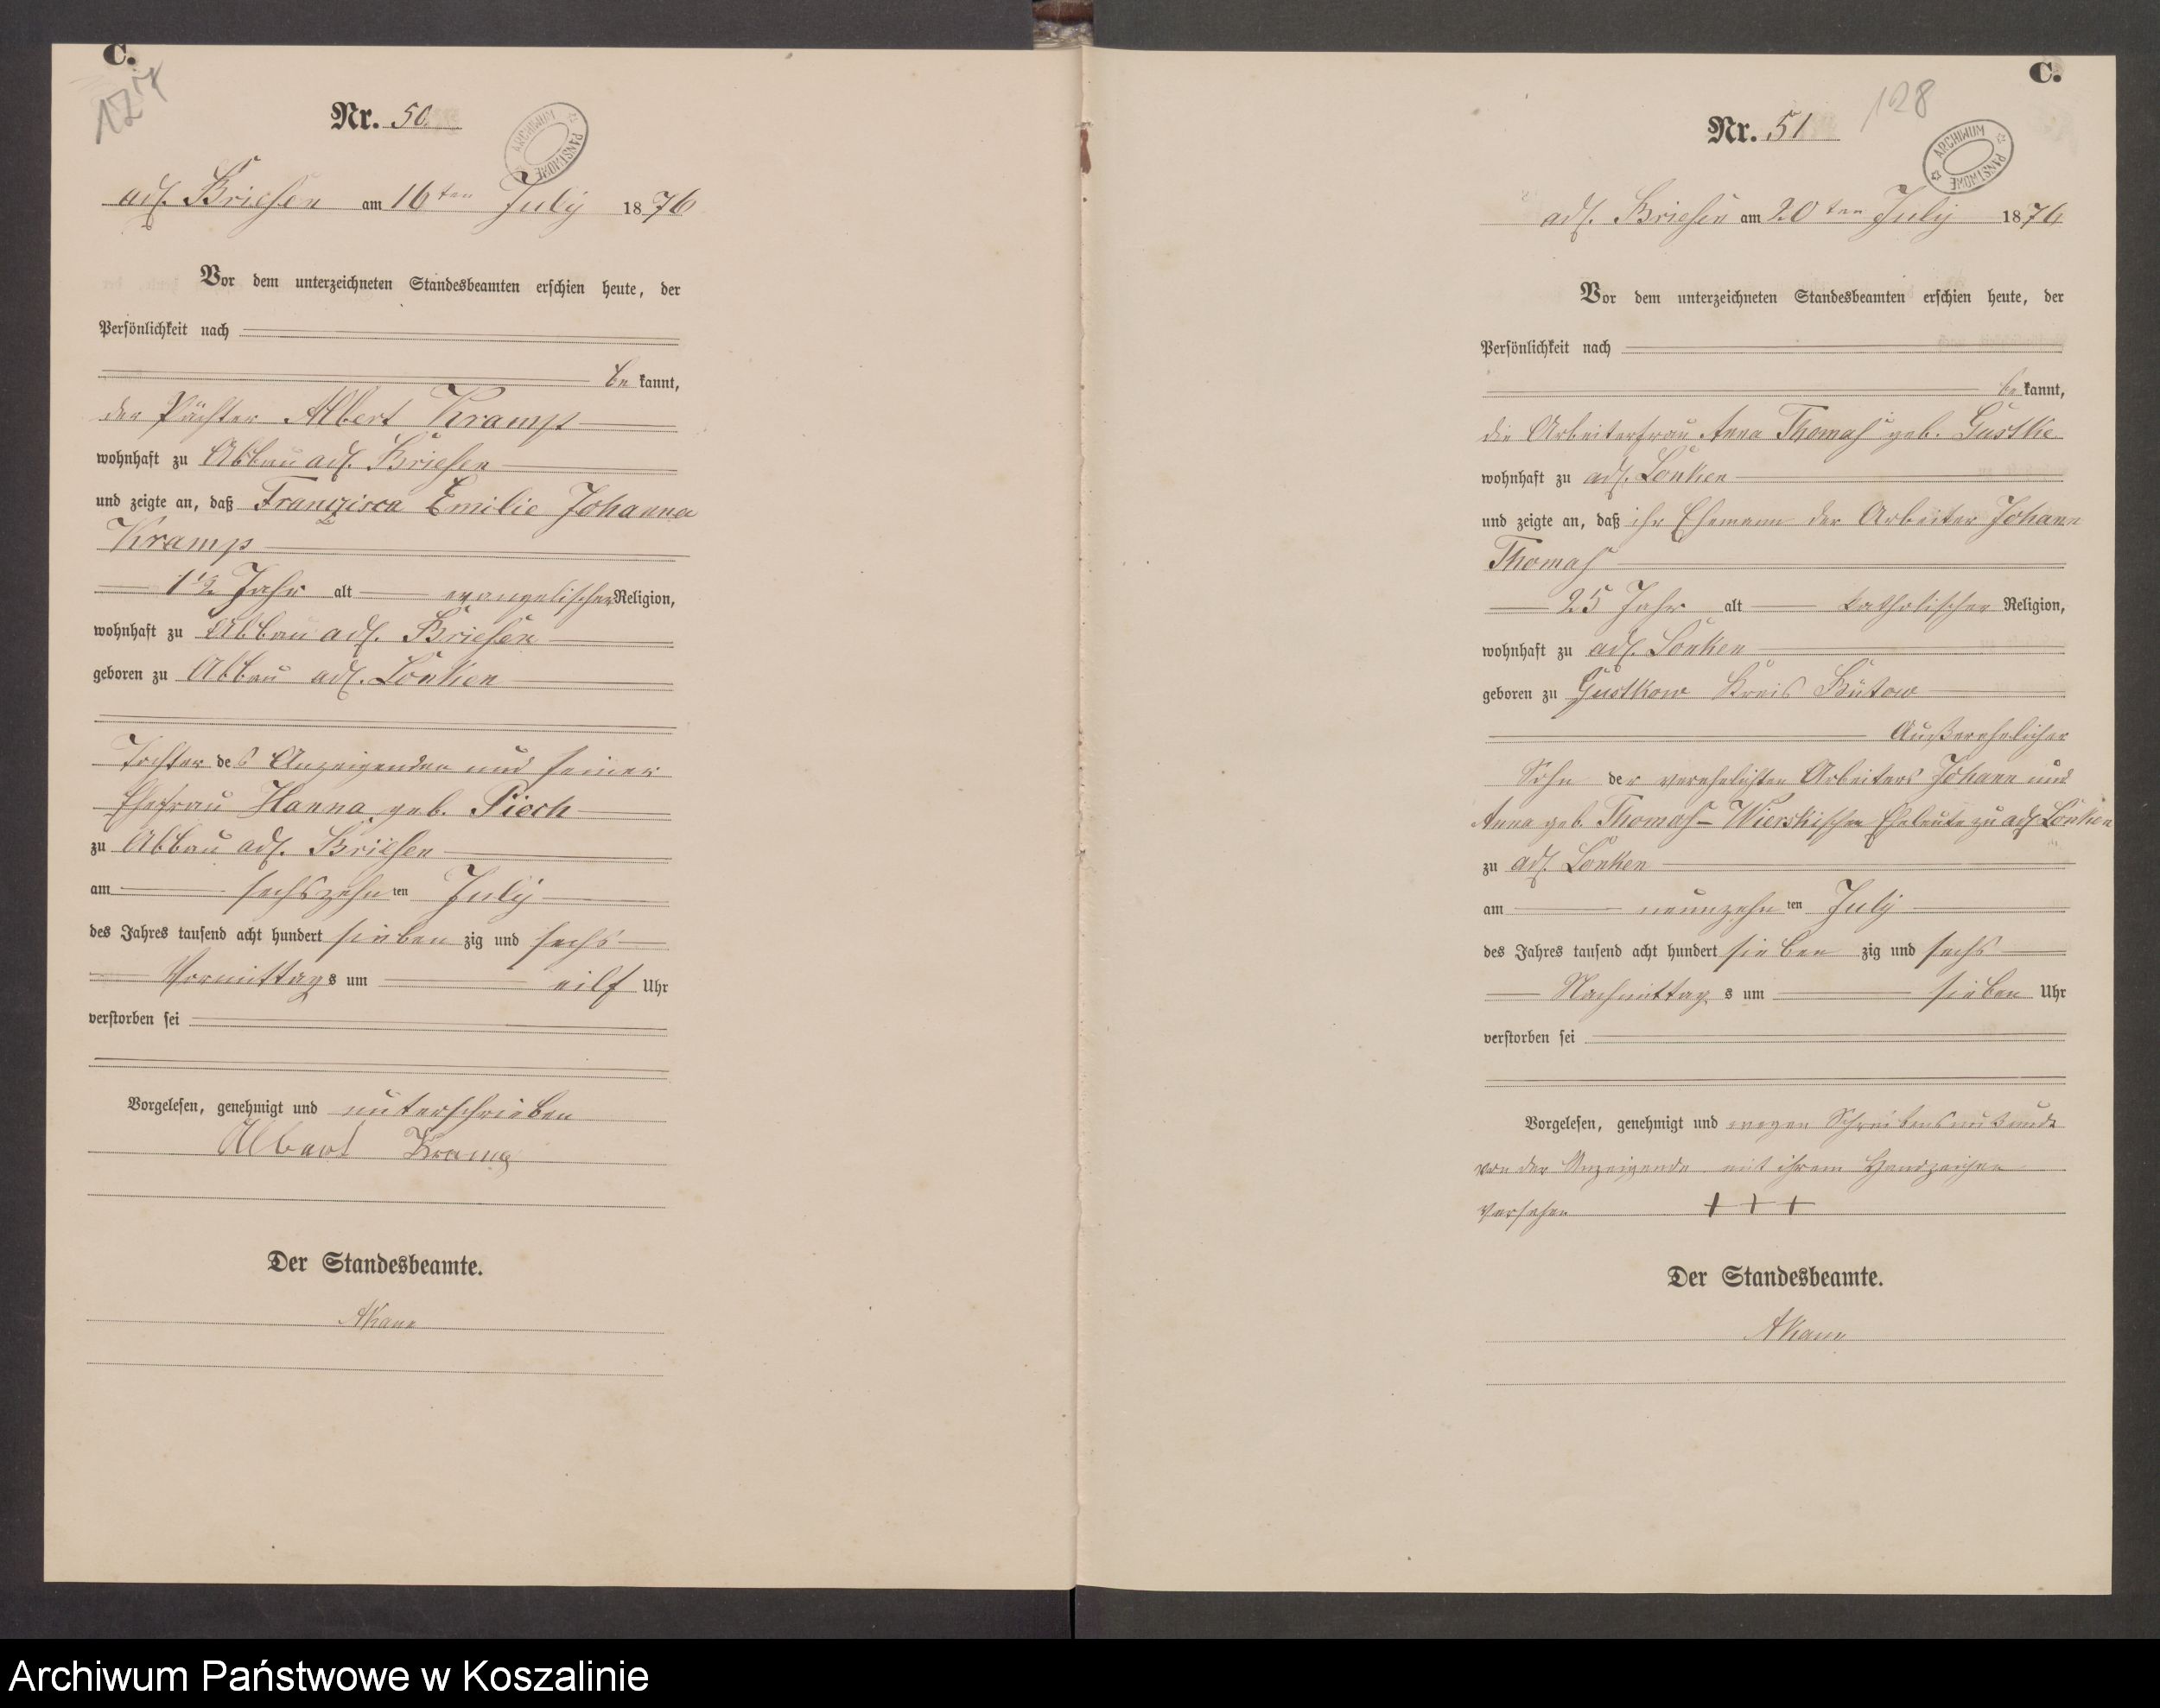 C.
127
Nr. 50.
ARCHIWUM PAŃSTWOWE
adl. Briesen am 16ten July 1876
Vor dem unterzeichneten Standesbeamten erschien heute, der
Persönlichkeit nach
be kannt,
der Pächter Albert Kramp
wohnhaft zu Abbau adl. Briesen
und zeigte an, daß Franzisca Emilie Johanna
Kramp
1½ Jahr alt evangelischer Religion,
wohnhaft zu Abbau adl. Briesen
geboren zu Abbau adl. Lonken
Tochter des Anzeigenden und seiner
Ehefrau Hanna geb. Piech
zu Abbau adl. Briesen
am sechszehn ten July
des Jahres tausend acht hundert sieben zig und sechs
Vormittags um eilf Uhr
verstorben sei
Vorgelesen, genehmigt und unterschrieben
Albert Kramp
Der Standesbeamte.
C.
128
Nr. 51
ARCHIWUM PAŃSTWOWE
adl. Briesen am 20ten July 1876
Vor dem unterzeichneten Standesbeamten erschien heute, der
Persönlichkeit nach
be kannt,
die Arbeiterfrau Anna Thomas geb. Gustke
wohnhaft zu adl. Lonken
und zeigte an, daß ihr Ehemann der Arbeiter Johann
Thomas
25 Jahr alt katholischer Religion,
wohnhaft zu adl. Lonken
geboren zu Gustkow Kreis Bütow
Außerehelicher
Sohn der verehelichten Arbeiters Johann und
Anna geb. Thomas - Wierskischen Eheleute zu adl. Lonken
zu adl. Lonken
am neunzehn ten July
des Jahres tausend acht hundert sieben zig und sechs
Nachmittag s um sieben Uhr
verstorben sei
Vorgelesen, genehmigt und wegen Schreibensunkunde
von der Anzeigende mit ihrem Handzeichen
versehen + + +
Der Standesbeamte.
Archiwum Państwowe w Koszalinie